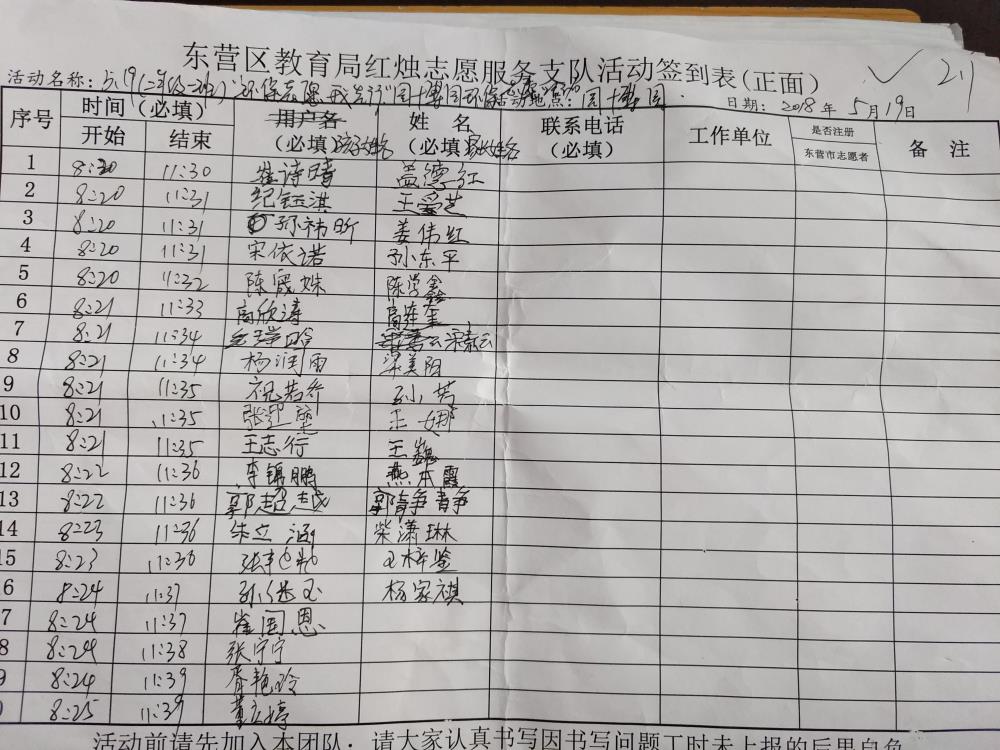 东营区教育局红烛志愿服务支队活动签到表(正面) 21
活动名称: 活动地点: 园博园 日期: 2018年5月19日
序号 时间(必填) 用户名 姓名 联系电话 工作单位 是否注册 备注
开始 结束 (必填)孩子姓名 (必填)家长姓名 (必填) 东营市志愿者
1 8:20 11:30 崔诗晴 盖德红
2 8:20 11:31 纪钰淇 王爱芝
3 8:20 11:31 孙祎昕 姜伟红
4 8:20 11:31 宋依诺 孙东平
5 8:20 11:32 陈晟姝 陈学鑫
6 8:21 11:33 高欣涛 高连奎
7 8:21 11:34
8 8:21 11:34 杨润雨 梁美阳
9 8:21 11:35 祝若乔 孙芳
10 8:21 11:35 王娜
11 8:21 11:35 王志行 王巍
12 8:22 11:36 李锦鹏 燕本霞
13 8:22 11:36 郭超越 郭静静
14 8:23 11:36 朱立涵 柴潇琳
15 8:23 11:36 王梓鉴
6 8:24 11:37 杨家祺
7 8:24 11:37 崔国恩
8 8:24 11:38 张宁宁
9 8:24 11:39 胥艳玲
8:25 11:39
活动前请先加入本团队. 请大家认真书写因书写问题工时未上报的后果自负